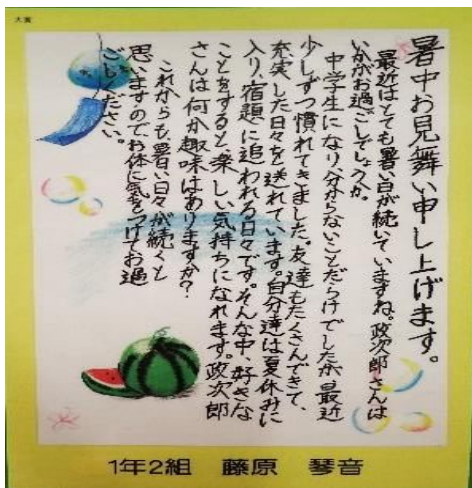 大賞
暑中お見舞い申し上げます。
最近はとても暑い日が続いていますね。政次郎さんは
いかがお過ごしでしょうか。
中学生になり、分からないことだらけでしたが、最近
少しずつ慣れてきました。友達もたくさんできて、
充実した日々を送れています。自分達は夏休みに
入り、宿題に追われる日々です。そんな中、好きな
ことをすると、楽しい気持ちになれます。政次郎
さんは何か趣味はありますか？
これからも、暑い日々が続くと
思いますのでお体に気をつけてお過
ごしください。
1年2組 藤原 琴音